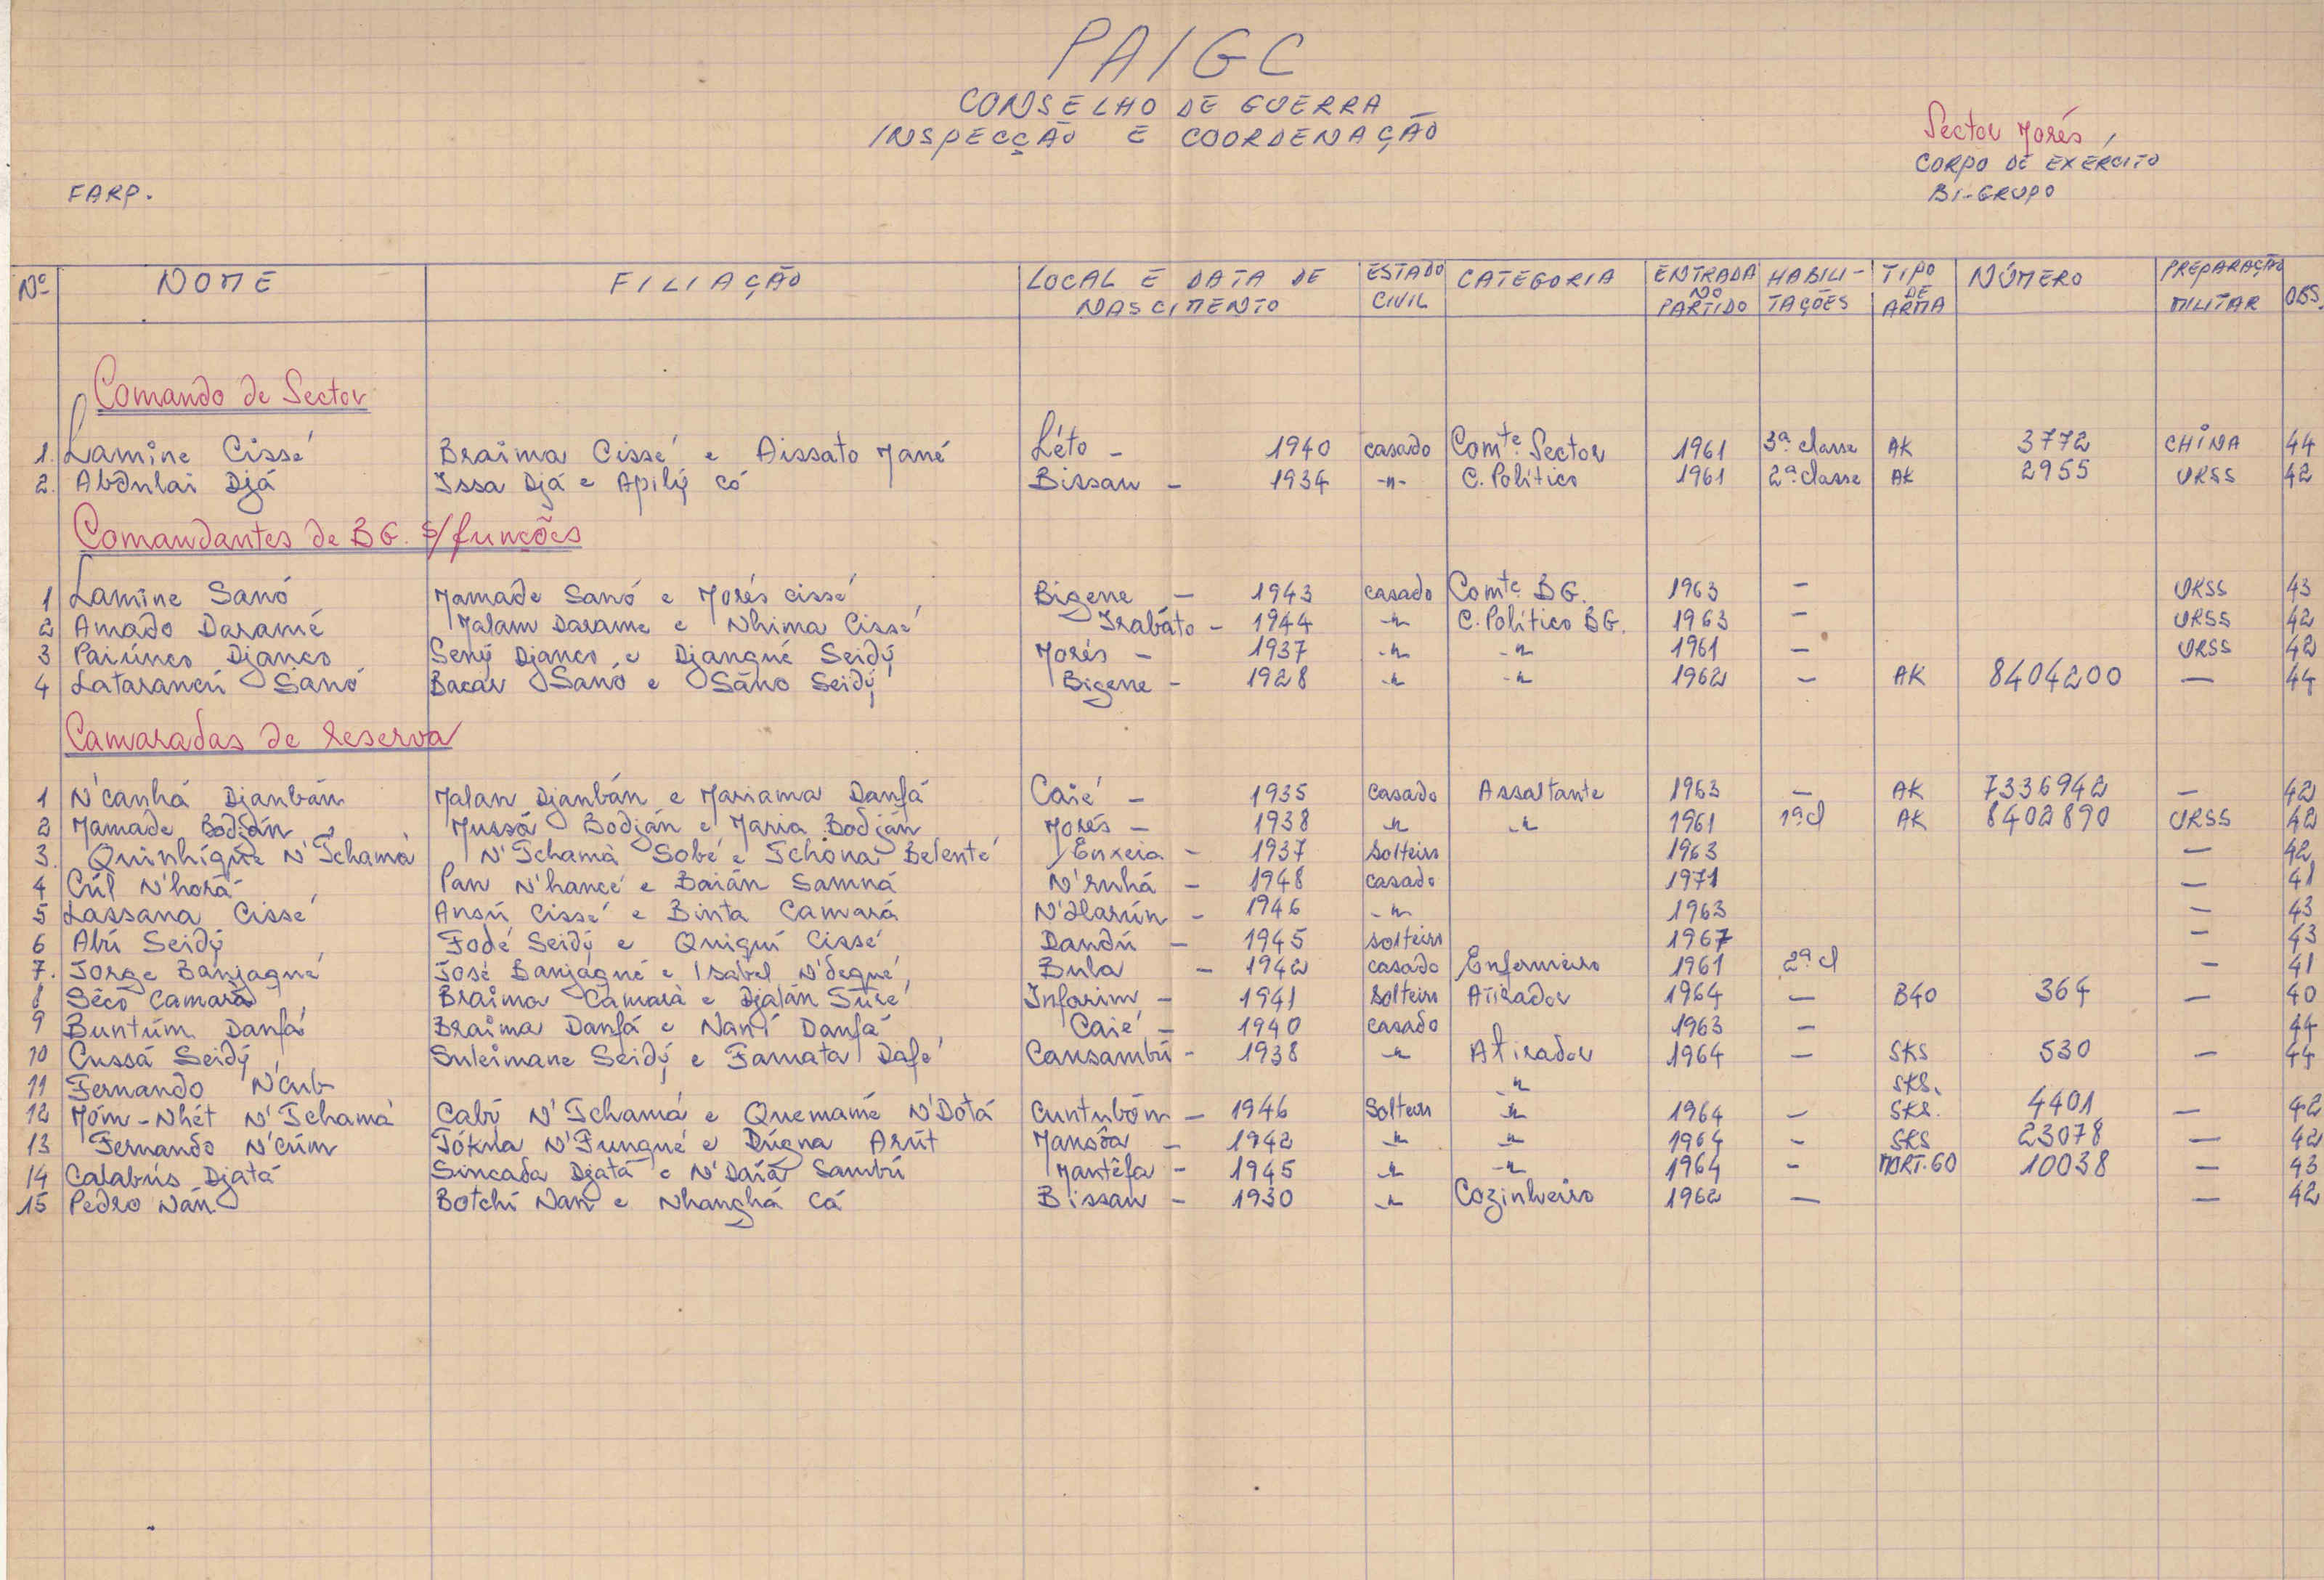 PAIGC
CONSELHO DE GUERRA
INSPECÇÃO E COORDENAÇÃO
Sector Morés
CORPO DE EXÉRCITO
BI-GRUPO
FARP.
Nº NOME FILIAÇÃO LOCAL E DATA DE NASCIMENTO ESTADO CIVIL CATEGORIA ENTRADA NO PARTIDO HABILI-TAÇÕES TIPO DE ARMA NÚMERO PREPARAÇÃO MILITAR OBS.
Comando de Sector
1. Lamine Cissé Braima Cissé e Aissato Mané Léto - 1940 casado Comte. Sector 1961 3ª classe AK 3772 CHINA 44
2. Abdulai Djá Issa Djá e Apilý Có Bissau - 1934 -"- C. Político 1961 2ª classe AK 2955 URSS 42
Comandantes de BG. s/funções
1 Lamine Sanó Mamade Sanó e Morés cissé Bigene - 1943 casado Comte BG. 1963 - URSS 43
2 Amado Daramé Malam Darame e Nhima Cissé Irabáto - 1944 -"- C. Político BG. 1963 - URSS 42
3 Paiúnco Djanco Sený Djanco e Djangué Seidý Morés - 1937 -"- -"- 1961 - URSS 42
4 Latarancú Sanó Bacar Sanó e Sano Seidý Bigene - 1928 -"- -"- 1962 - AK 8404200 - 44
Camaradas de reserva
1 N'canhá Djanbán Malan Djanbán e Mariama Danfá Caié - 1935 casado Assaltante 1963 - AK 7336942 - 42
2 Mamade Bodján Mussá Bodján e Maria Bodján Morés - 1938 -"- -"- 1961 1ª cl AK 8402890 URSS 42
3. Quinhígue N'Tchamá N'Tchamà Sobé e Tchona Belenté Enxeia - 1937 Solteiro 1963 - 42
4 Cúl N'horá Pan N'hancé e Baián Samná N'ruhá - 1948 casado 1971 - 41
5 Lassana Cissé Ansú Cissé e Binta Camará N'Harún - 1946 -"- 1963 - 43
6 Abú Seidý Fodé Seidý e Quiquí Cissé Dandú - 1945 solteiro 1967 - 43
7. Jorge Banjagué José Banjágué e Isabel N'degué Bula - 1942 casado Enfermeiro 1961 2ª cl - 41
8 Sêco Camará Braima Camará e Djalán Suré Infarim - 1941 Solteiro Atirador 1964 - B40 364 - 40
9 Buntúm Danfá Braima Danfá e Naní Danfá Caié - 1940 casado 1963 - 44
10 Cussá Seidý Suleimane Seidý e Famata Dafé Cansambú - 1938 -"- Atirador 1964 - SKS 530 - 44
11 Fernando N'Cub -"- SKS.
12 Móm-Nhét N'Tchamá Cabí N'Tchamá e Quemamé N'Dotá Cuntubóm - 1946 Solteiro -"- 1964 - SKS. 4401 - 42
13 Fernando N'Cúm Tókna N'Fungué e Dúgna Arút Mansôa - 1942 -"- -"- 1964 - SKS 23078 - 42
14 Calabús Djatá Sincada Djatá e N'Daiá Sambú Mantêfa - 1945 -"- -"- 1964 - MORT.60 10038 - 43
15 Pedro Nán Botchí Nan e Nhanghá Cá Bissau - 1930 -"- Cozinheiro 1962 - - 42